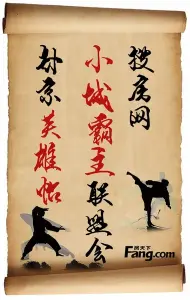 搜房网
小城霸主联盟会
孙泵英雄帖
房天下
Fang.com